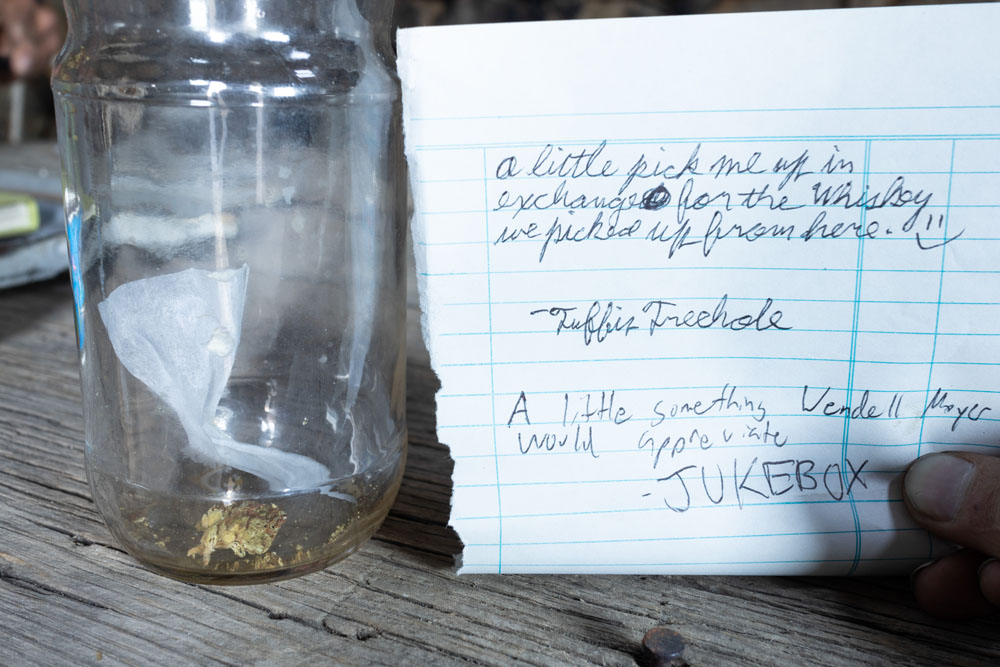 a little pick me up in
exchange for the whiskey
we picked up from here.
A little something Wendell Moyer
would appreviate
-JUKEBOX